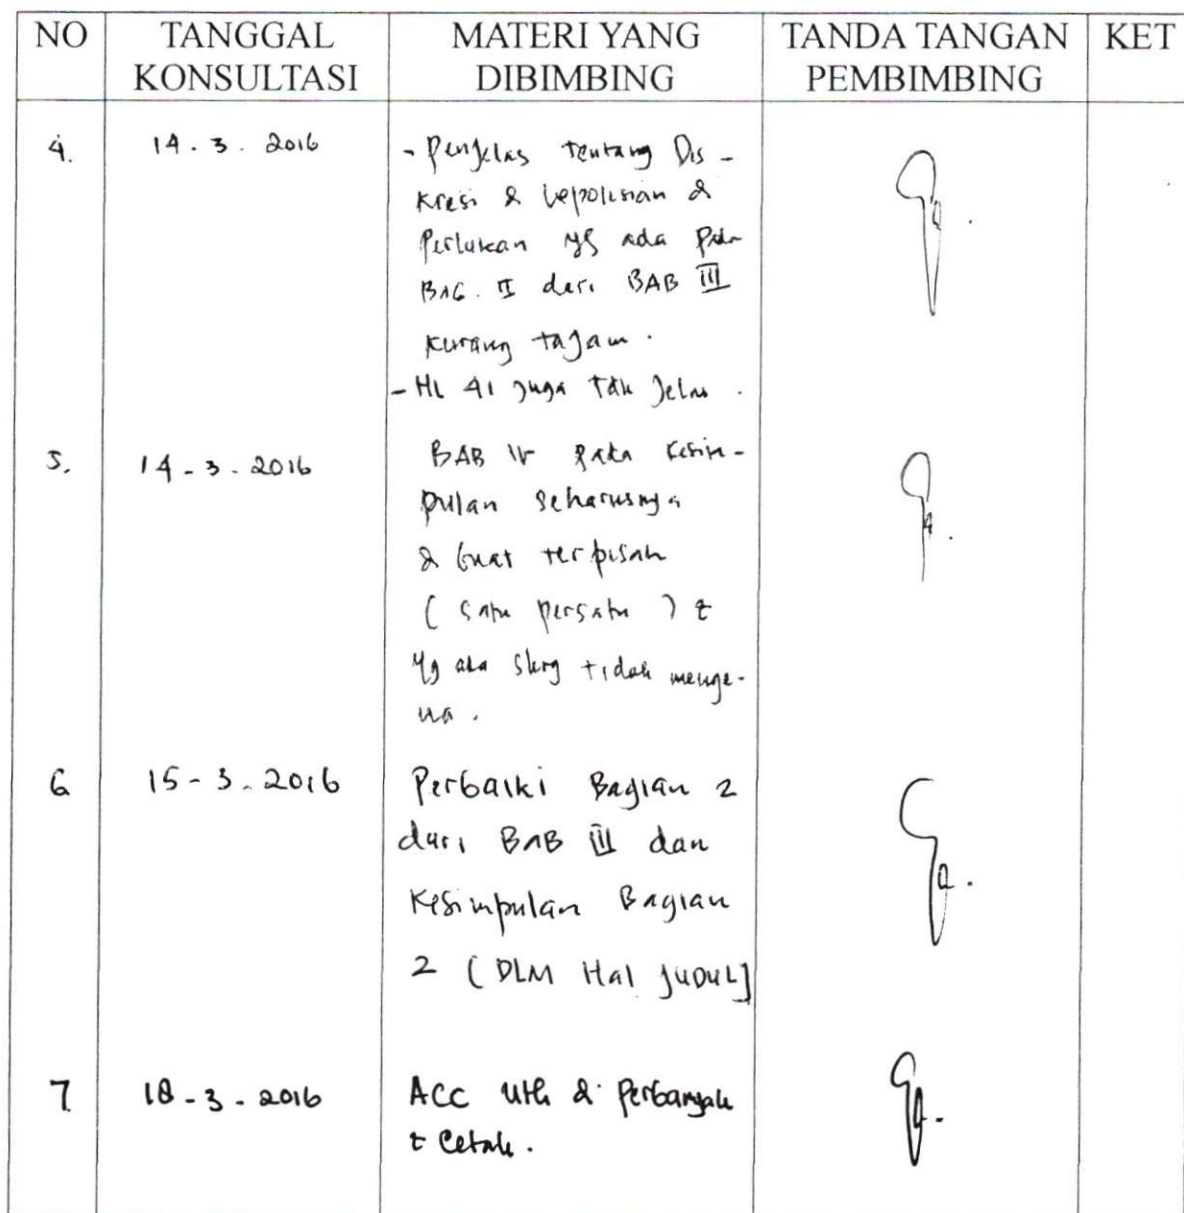 NO TANGGAL KONSULTASI MATERI YANG DIBIMBING TANDA TANGAN PEMBIMBING KET
4. 14 . 3 . 2016 - Penjelas tentang Dis -
kresi & kepolisian &
Perlukan yg ada pada
BAG. II dari BAB III
kurang tajam .
- Hl 41 juga tdk jelas .
5. 14 - 3 - 2016 BAB IV pada kesim -
pulan seharusnya
& buat terpisah
( satu persatu )
yg ada skrg tidak menge-
na .
6 15 - 3 - 2016 Perbaiki Bagian 2
dari BAB III dan
Kesimpulan Bagian
2 ( DLM Hal JUDUL ]
7. 18 - 3 - 2016 ACC utk di perbanyak
& cetak .